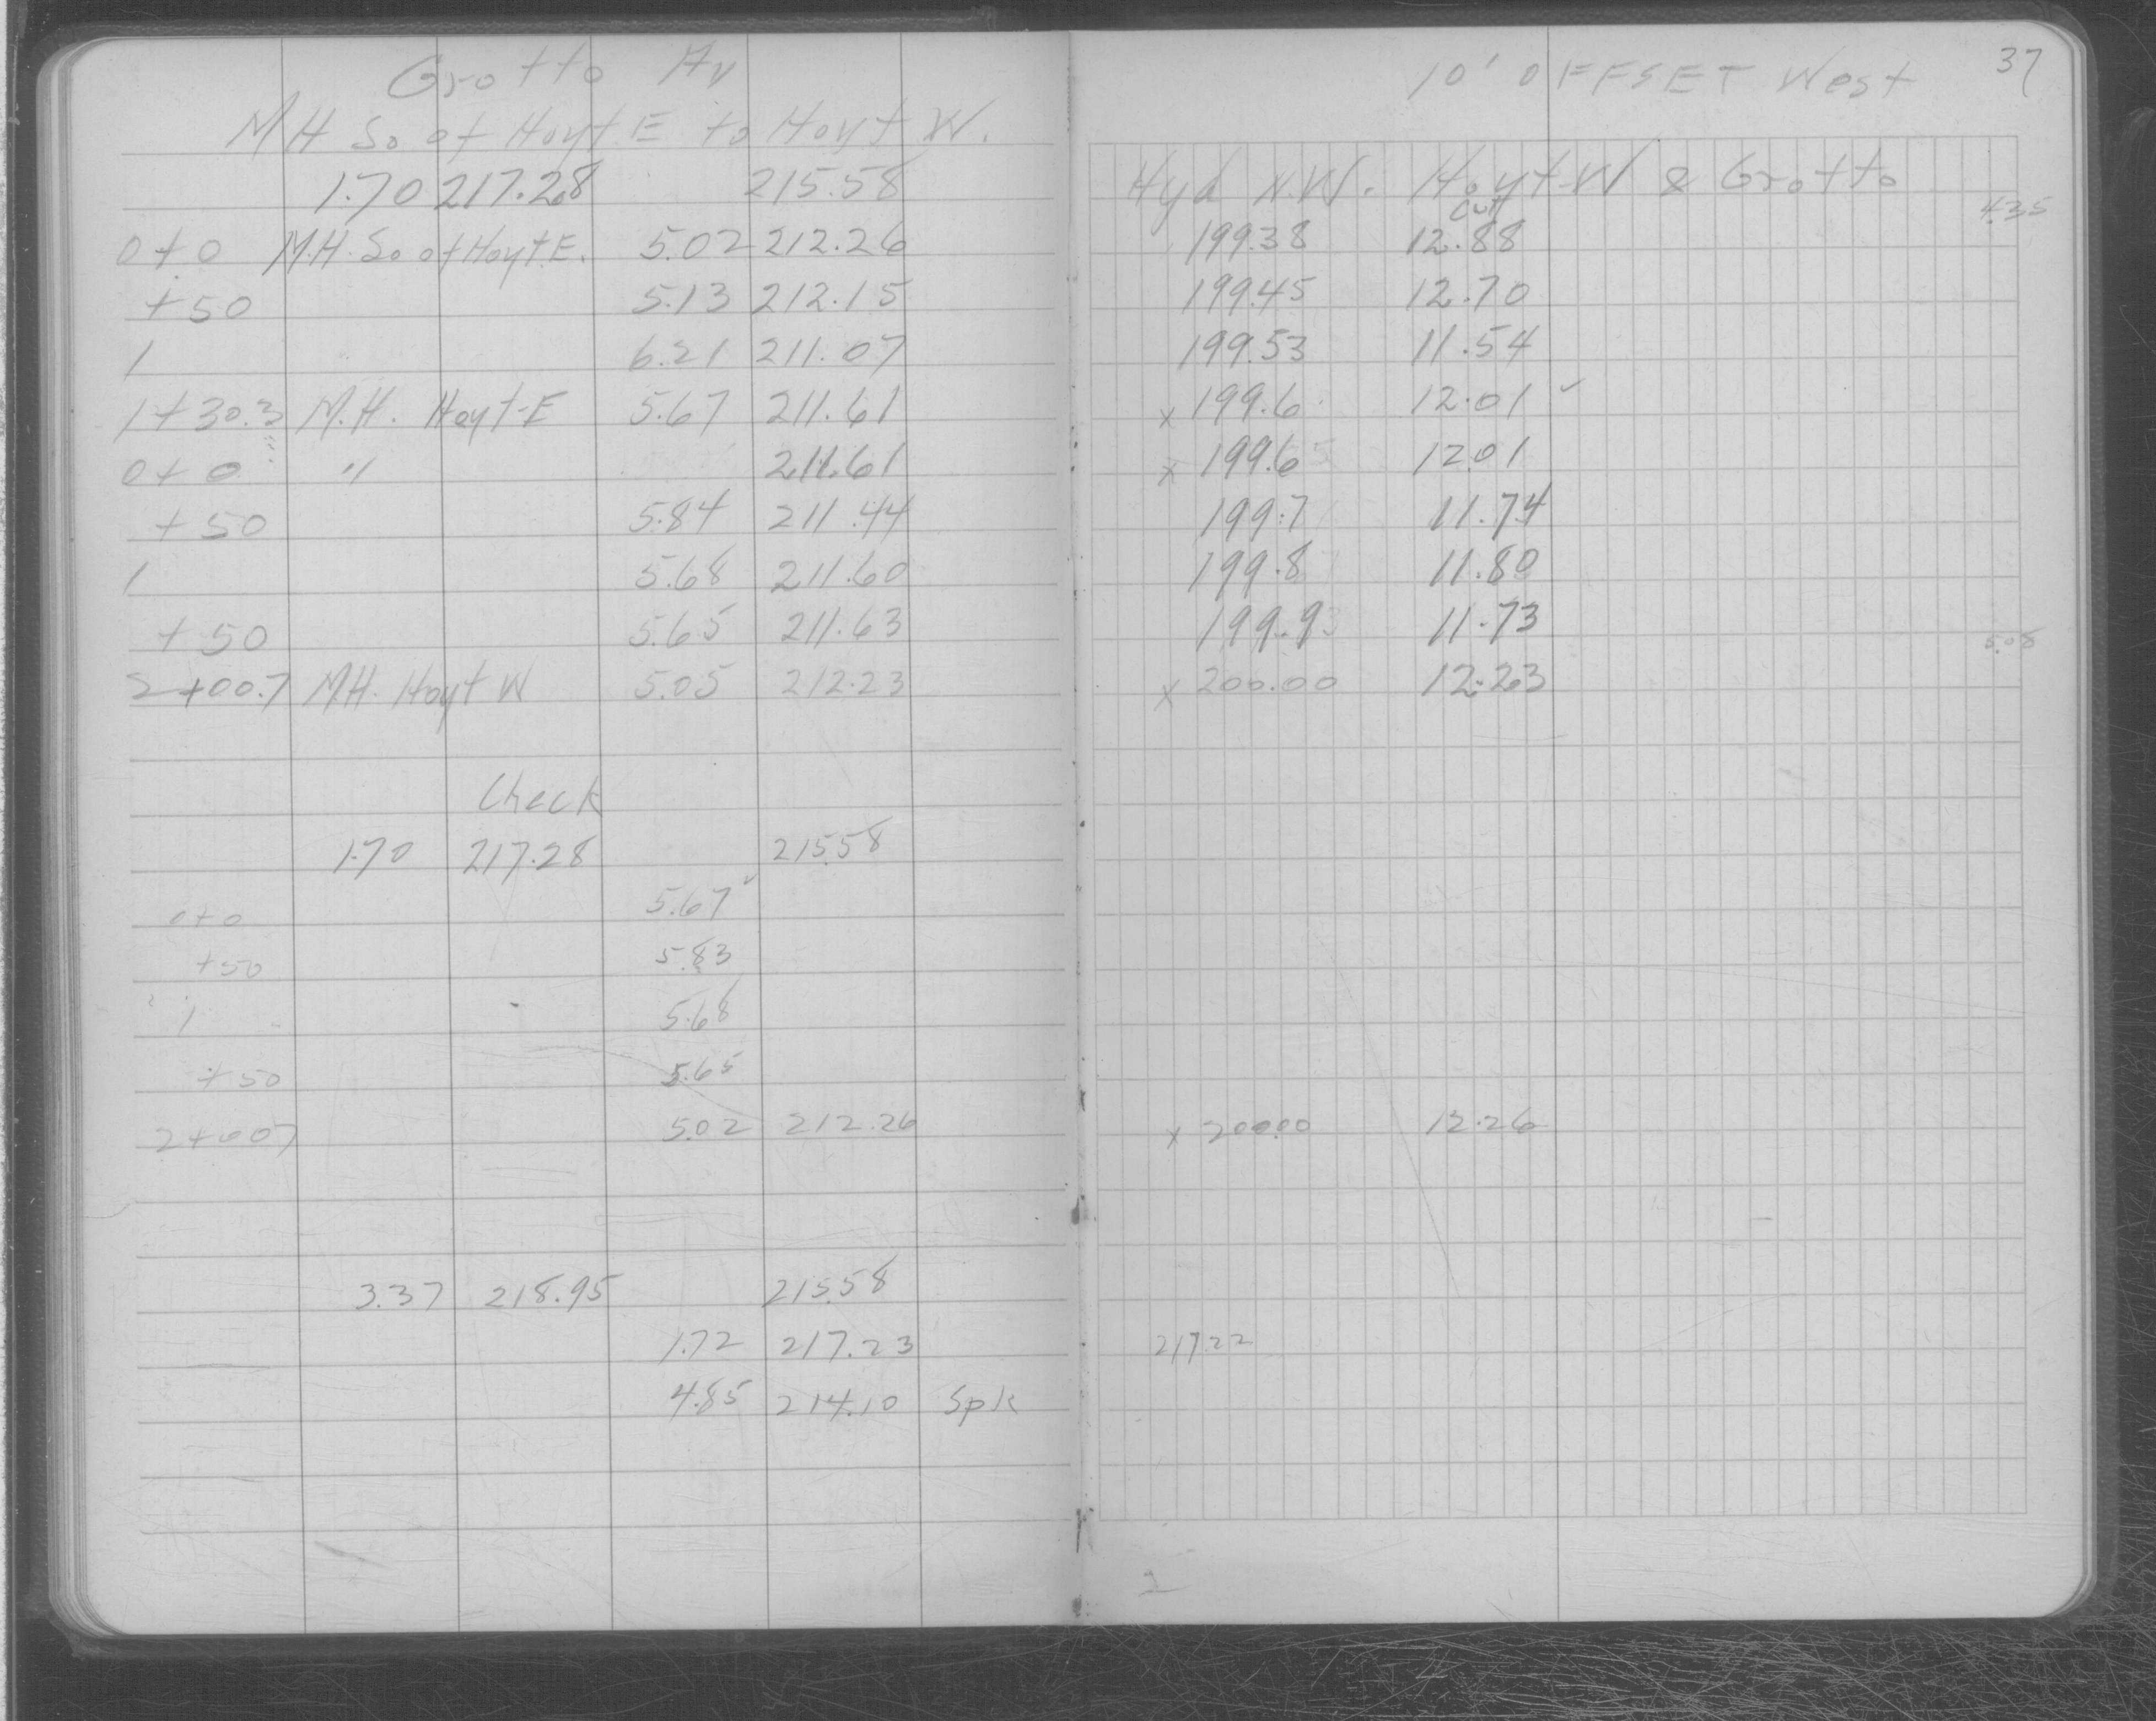 Grotto Av
10' OFFSET West
37
MH So of Hoyt E to Hoyt W.
1.70 217.28 215.58 Hyd N.W. Hoyt-W & Grotto
cut 4.35
0+0 M.H. So of Hoyt E. 5.02 212.26 199.38 12.88
+50 5.13 212.15 199.45 12.70
1 6.21 211.07 199.53 11.54
1+30.3 M.H. Hoyt-E 5.67 211.61 x 199.6 12.01 ✓
0+0 " 211.61 x 199.6 12.01
+50 5.84 211.44 199.7 11.74
1 5.68 211.60 199.8 11.80
+50 5.65 211.63 199.9 11.73
5.08
2+00.7 MH. Hoyt W 5.05 212.23 x 200.00 12.23
Check
1.70 217.28 215.58
0+0 5.67 ✓
+50 5.83
1 5.68
+50 5.65
2+007 5.02 212.26 x 200.00 12.26
3.37 218.95 215.58
1.72 217.23 217.22
4.85 214.10 Spk
2